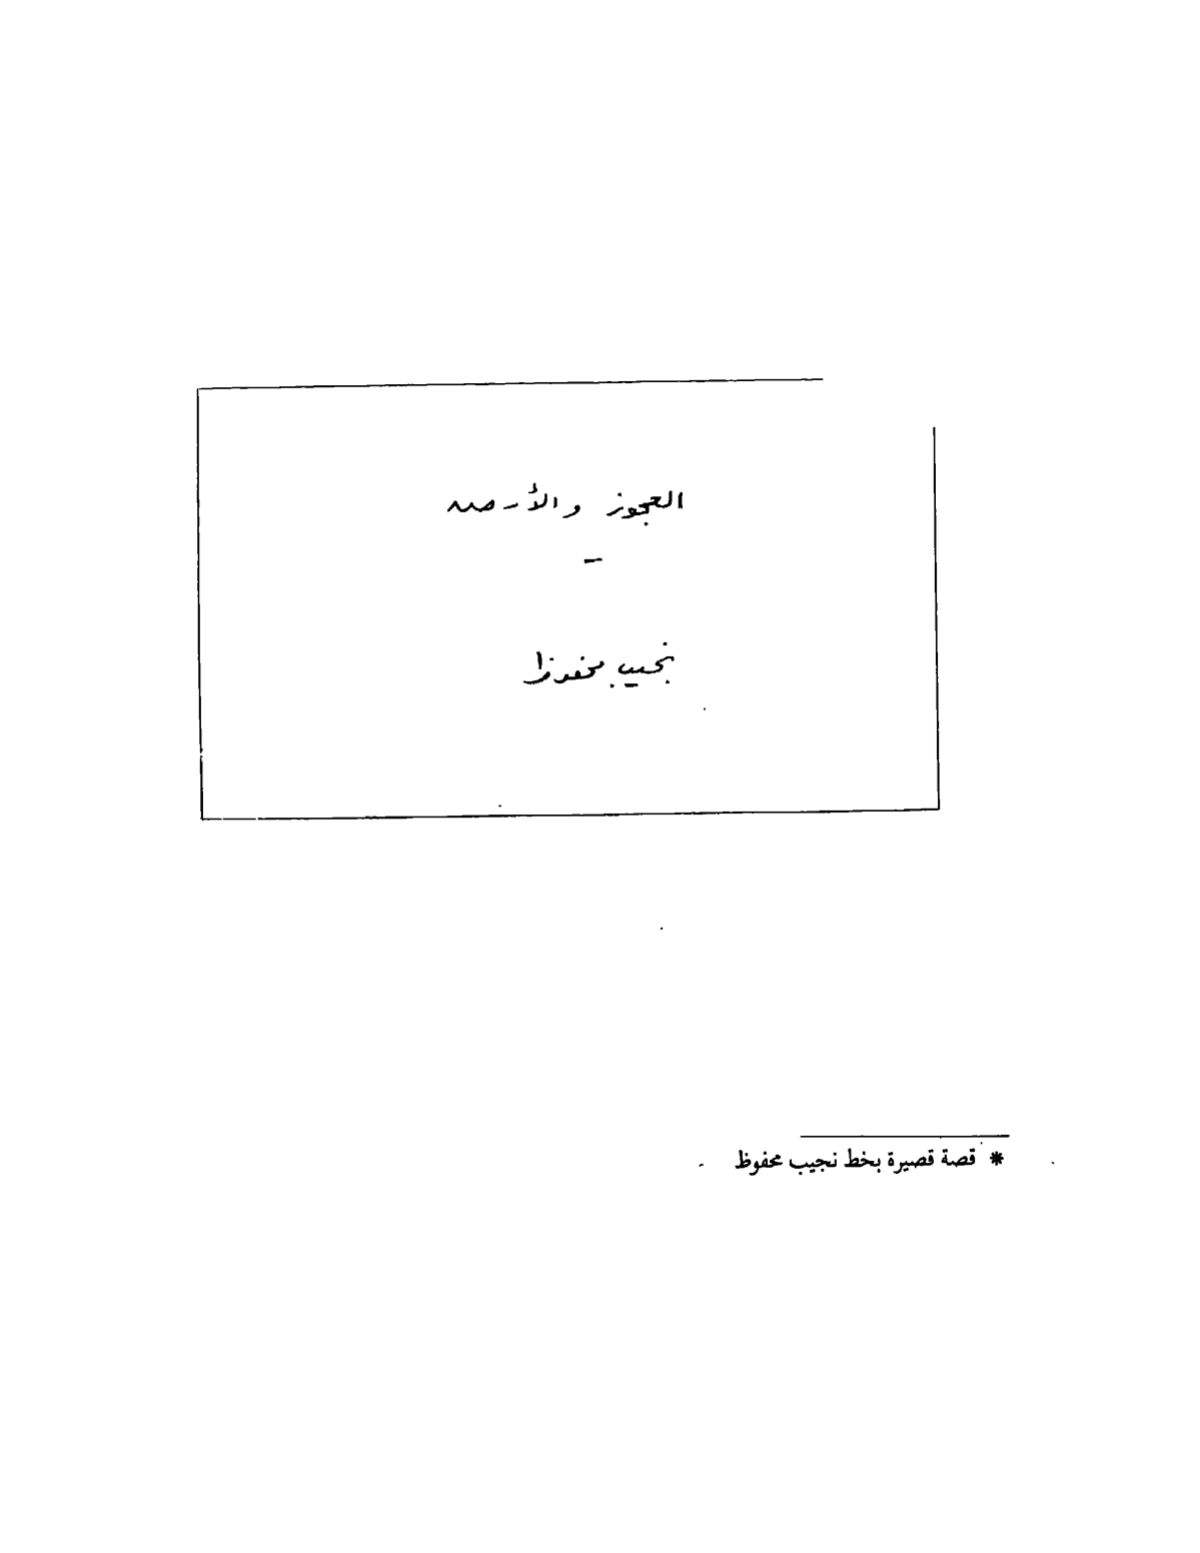 العجوز والأرض
-
نجيب محفوظ
* قصة قصيرة بخط نجيب محفوظ